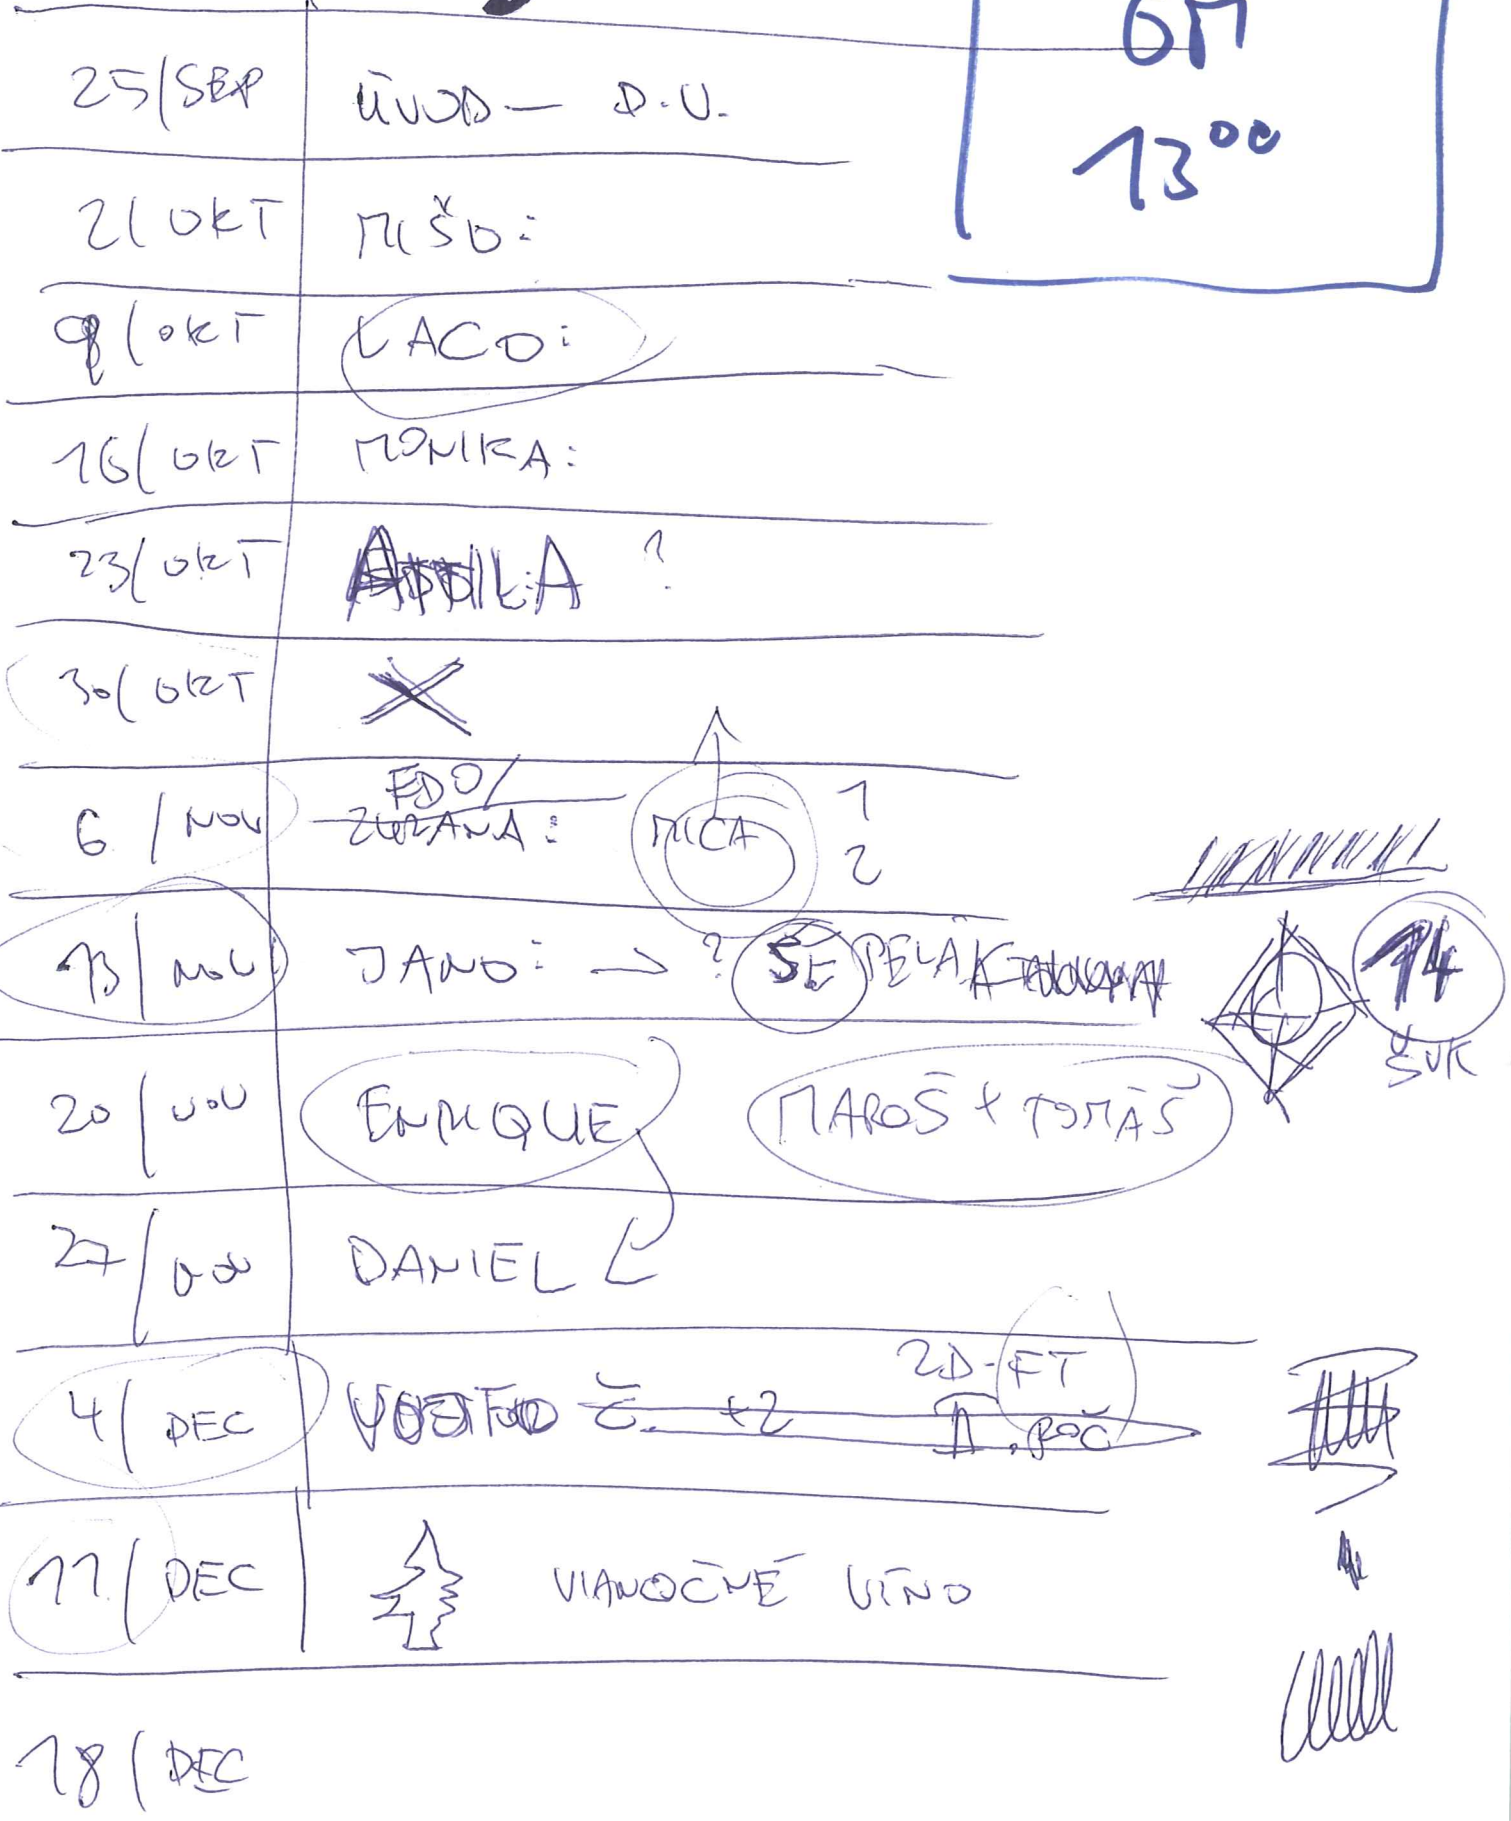 13⁰⁰
25/SEP ÚVOD — D.U.
2/OKT MIŠO:
9/OKT LACO:
16/OKT MONIKA:
23/OKT ATTILA ?
30/OKT X
EDO/
6/NOV ZUZANA: MICA 1
2
13/NOV JANO: → ? ŠEPELÁK 14
ŠVK
20/NOV ENRIQUE MAROŠ + TOMÁŠ
27/NOV DANIEL
2D-FT
4/DEC Č. +2 .ROČ
11/DEC VIANOČNÉ VÍNO
18/DEC